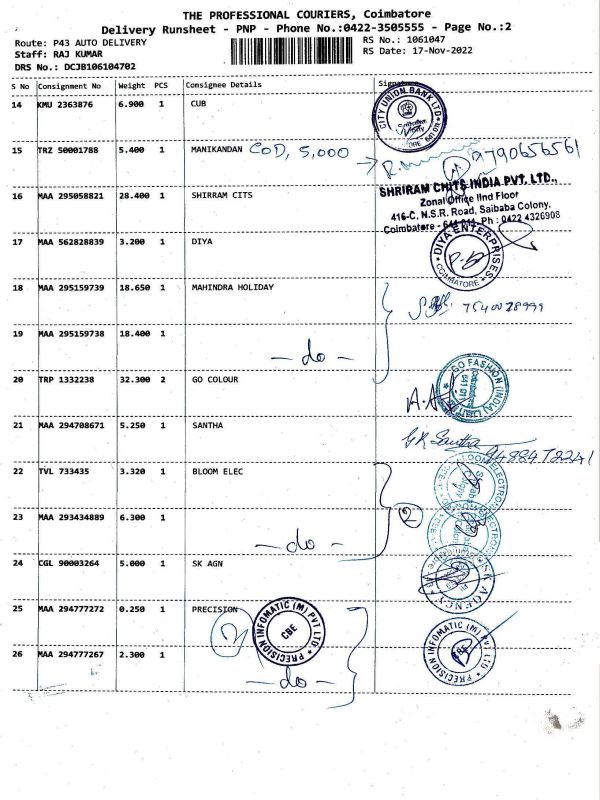 THE PROFESSIONAL COURIERS, Coimbatore
Delivery Runsheet - PNP - Phone No.:0422-3505555 - Page No.:2
Route: P43 AUTO DELIVERY
RS No.: 1061047
Staff: RAJ KUMAR
RS Date: 17-Nov-2022
DRS No.: DCJB106104702
S No Consignment No Weight PCS Consignee Details Signature
14 KMU 2363876 6.900 1 CUB
CITY UNION BANK LTD
15 TRZ 50001788 5.400 1 MANIKANDAN COD, 5,000 9790656561
16 MAA 295058821 28.400 1 SHRIRAM CITS
SHRIRAM CHITS INDIA PVT. LTD.,
Zonal Office IInd Floor
416-C, N.S.R. Road, Saibaba Colony,
Coimbatore - 641 011. Ph : 0422 4326908
17 MAA 562828839 3.200 1 DIYA
DIYA ENTERPRISES
COIMBATORE
18 MAA 295159739 18.650 1 MAHINDRA HOLIDAY
19 MAA 295159738 18.400 1
- do -
20 TRP 1332238 32.300 2 GO COLOUR
GO FASHION (INDIA)
21 MAA 294708671 5.250 1 SANTHA
G.R. Santha
9488472241
22 TVL 733435 3.320 1 BLOOM ELEC
BLOOM ELECTRONIC
23 MAA 293434889 6.300 1
2
- do -
24 CGL 90003264 5.000 1 SK AGN
SK AGENCY
25 MAA 294777272 0.250 1 PRECISION
2
PRECISION INFOMATIC (M) PVT LTD
CBE
PRECISION INFOMATIC (M) PVT LTD
CBE
26 MAA 294777267 2.300 1
- do -